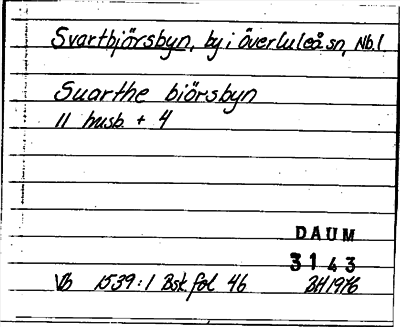 Svartbjörsbyn, by i överluleå sn, Nb.l
Suarthe biörsbyn
11 husb. + 4
DAUM
3143
Vb 1539:1 Bsk. fol 46 BH 1976